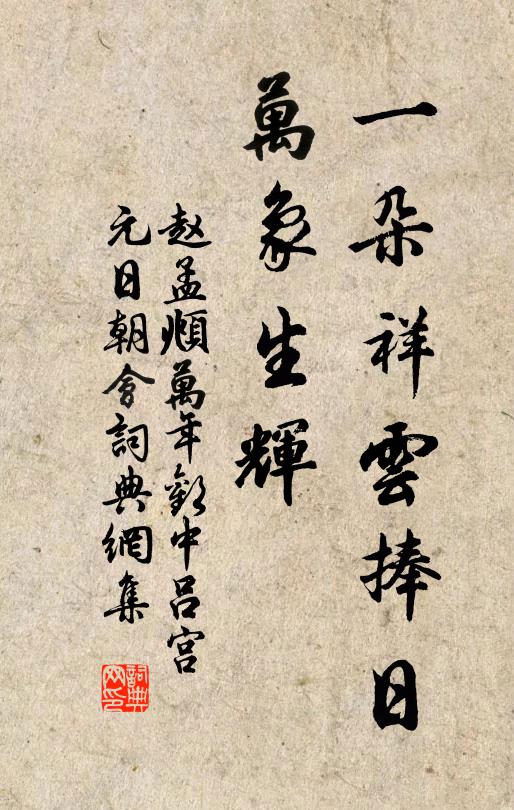 一朵祥雲捧日
萬象生輝
赵孟頫萬年歡中吕宫
元日朝會詞典網集
詞典
网印